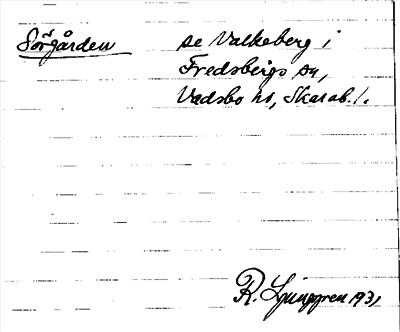 Sörgården se Valkeberg i
Fredsbergs sn,
Vadsbo hd, Skarab. l.
R. Ljunggren 1931